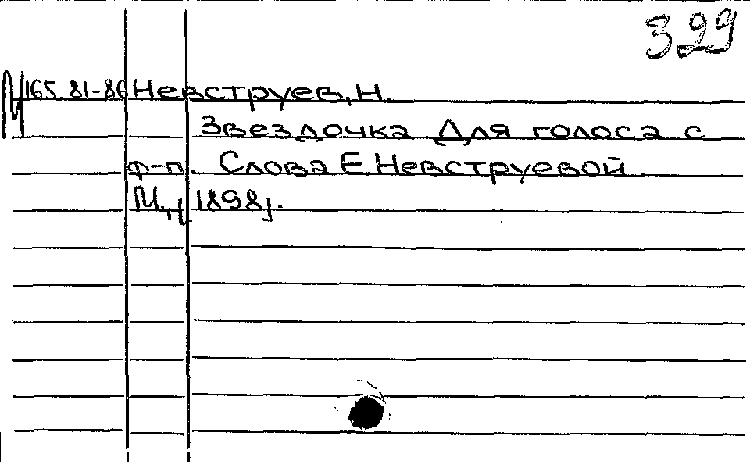 329
М165.81-86 Невструев, Н.
Звездочка Для голоса с
ф-п. Слова Е. Невструевой.
М., 1898.